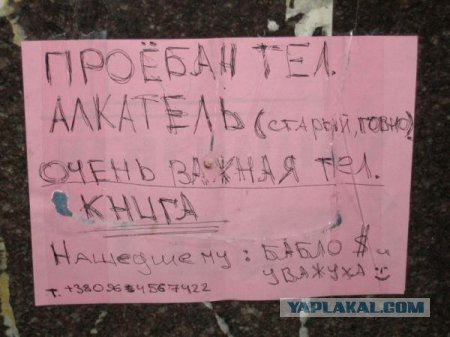 ПРОЁБАН ТЕЛ.
АЛКАТЕЛЬ (СТАРЫЙ, ГОВНО)
ОЧЕНЬ ВАЖНАЯ ТЕЛ.
КНИГА
Нашедшему: БАБЛО $ и
УВАЖУХА
YAPLAKAL.COM